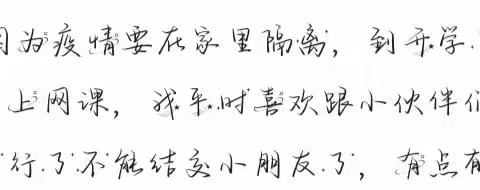 因为疫情要在家里隔离，到开学
上网课，我平时喜欢跟小伙伴们
行了不能结交小朋友了，有点